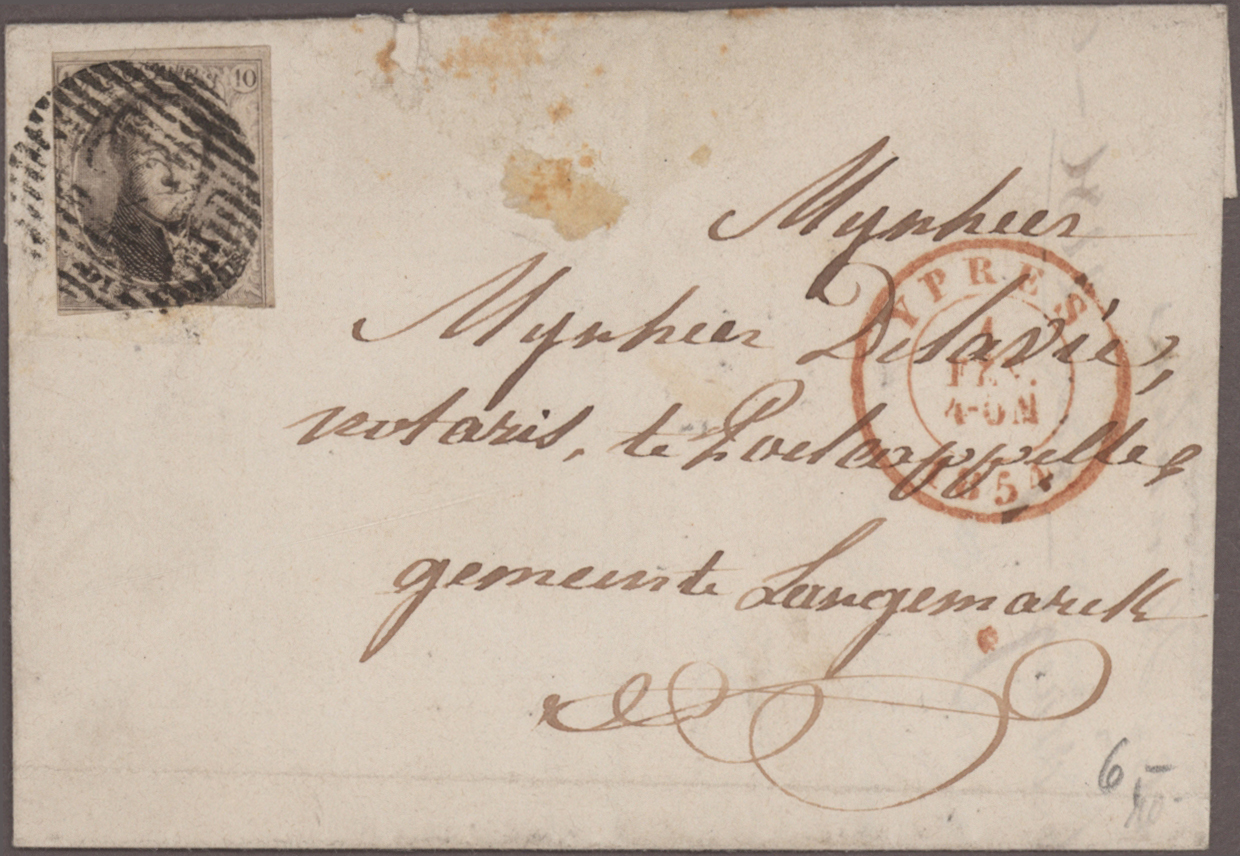 10
Mynheer
Mynheer Delavie,
notaris, te Poelcappelle,
gemeente Langemarck
YPRES
1
4-5M
1854
6 –